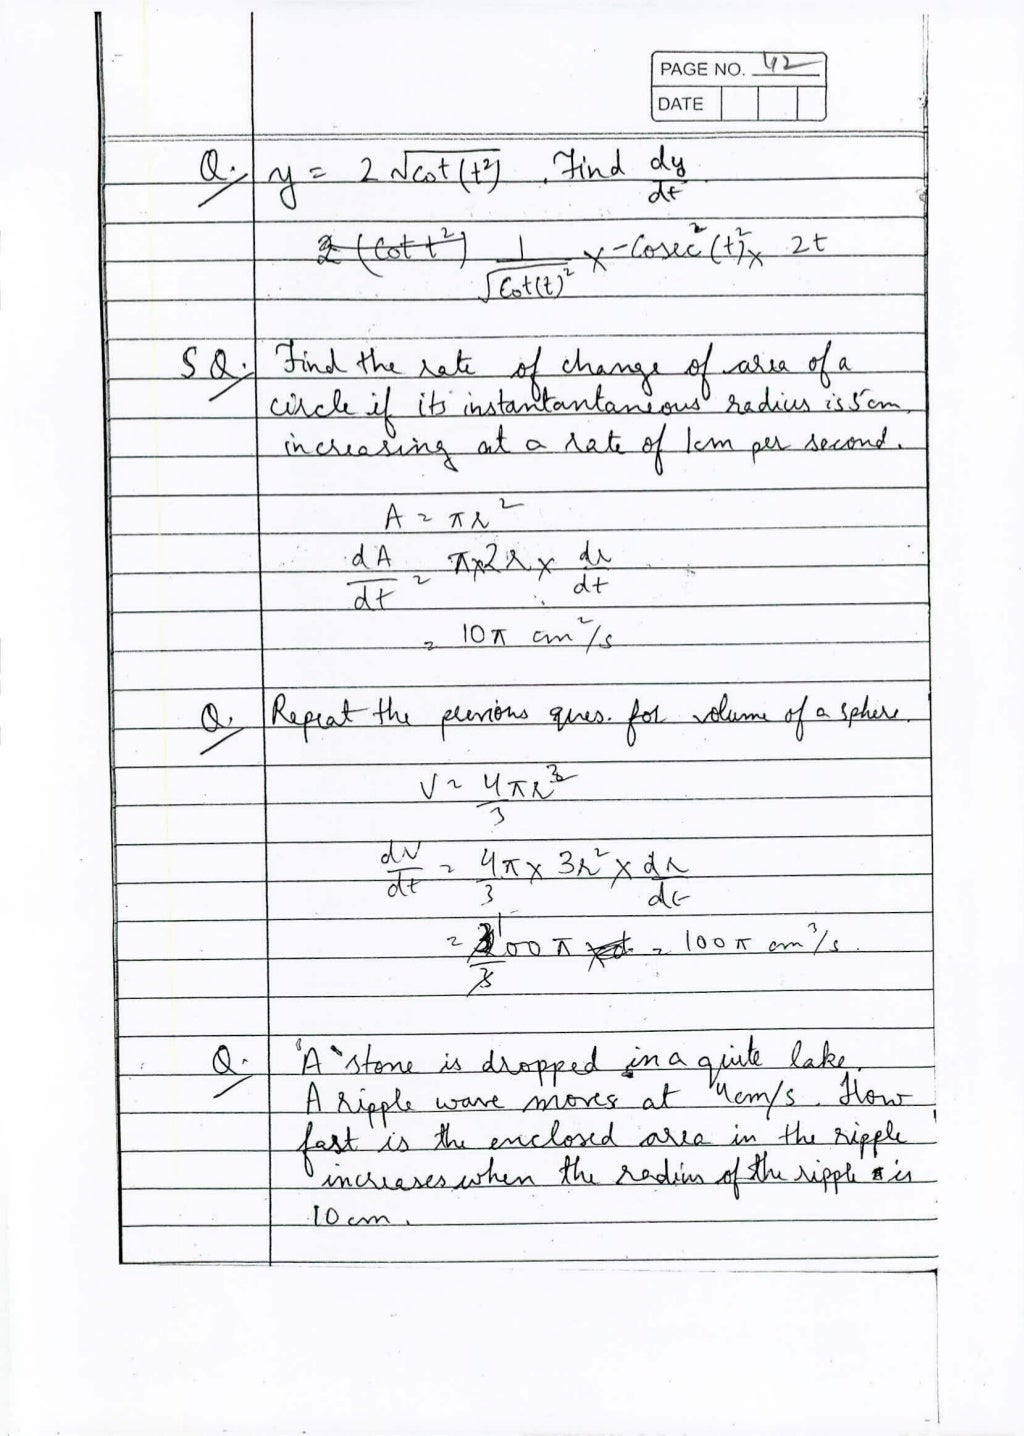 PAGE NO. 42
DATE
Q. y = 2 √cot(t²) . Find dy/dt.
2 (Cot t²) 1/√Cot(t)² x -Cosec²(t)² x 2t
5 Q. Find the rate of change of area of a
circle if its instantantaneous radius is 5cm,
increasing at a rate of 1cm per second.
A = πr²
dA/dt = π×2r × dr/dt
= 10π cm²/s
Q. Repeat the previous ques. for volume of a sphere.
V = 4πr³/3
dV/dt = 4π/3 × 3r² × dr/dt
= 100π = 100π cm³/s.
Q. "A stone is dropped in a quite lake.
A ripple wave moves at 4cm/s. How
fast is the enclosed area in the ripple
increases when the radius of the ripple is
10cm.